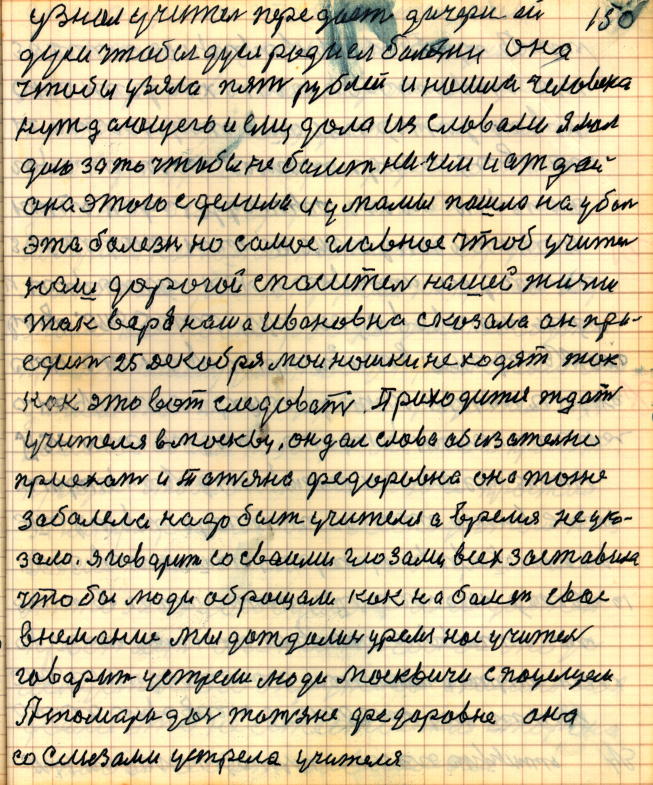 узнал учител передает дичери ей 150
дуси чтобы дуся родиел болезни она
чтобы узяла пять рублей и нашла человека
нуждающегь и ему дола из словами я вам
даю зато чтобы не балет ничем и атдай
она этого сделила и у мамы пошло на убол
эта болезн но самое главное чтоб учител
наш дорогой спасител нашей жизни
так вара наша Ивановна сказала он при-
едит 25 декобря мои ношки не ходят так
как это вот следовать. Приходится ждать
учителя в москву, он дал слова абизателно
приехать и татяна федоровна она тоже
забалела надо быт учителя а время не ука-
зало. я говарит со сваими глозами всех заставила
чтобы люди оброщали как на балет свае
внемание мы дождалис уремя нас учител
говарит устрели люди москвичи с поцелуем
Пономарь до татяне федоровне она
со слюзами устрела учителя